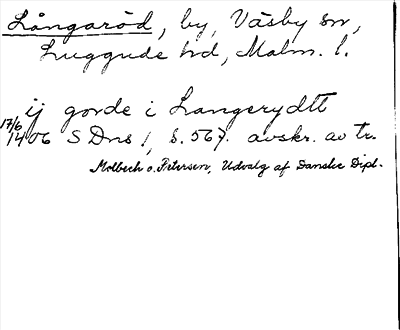 Långaröd, by, Väsby sn,
Luggude hd, Malm. l.
ij gorde i Langerydtt
17/6 1406 S Dns 1, s. 567. avskr. av tr.
Molbech o. Petersen, Udvalg af Danske Dipl.